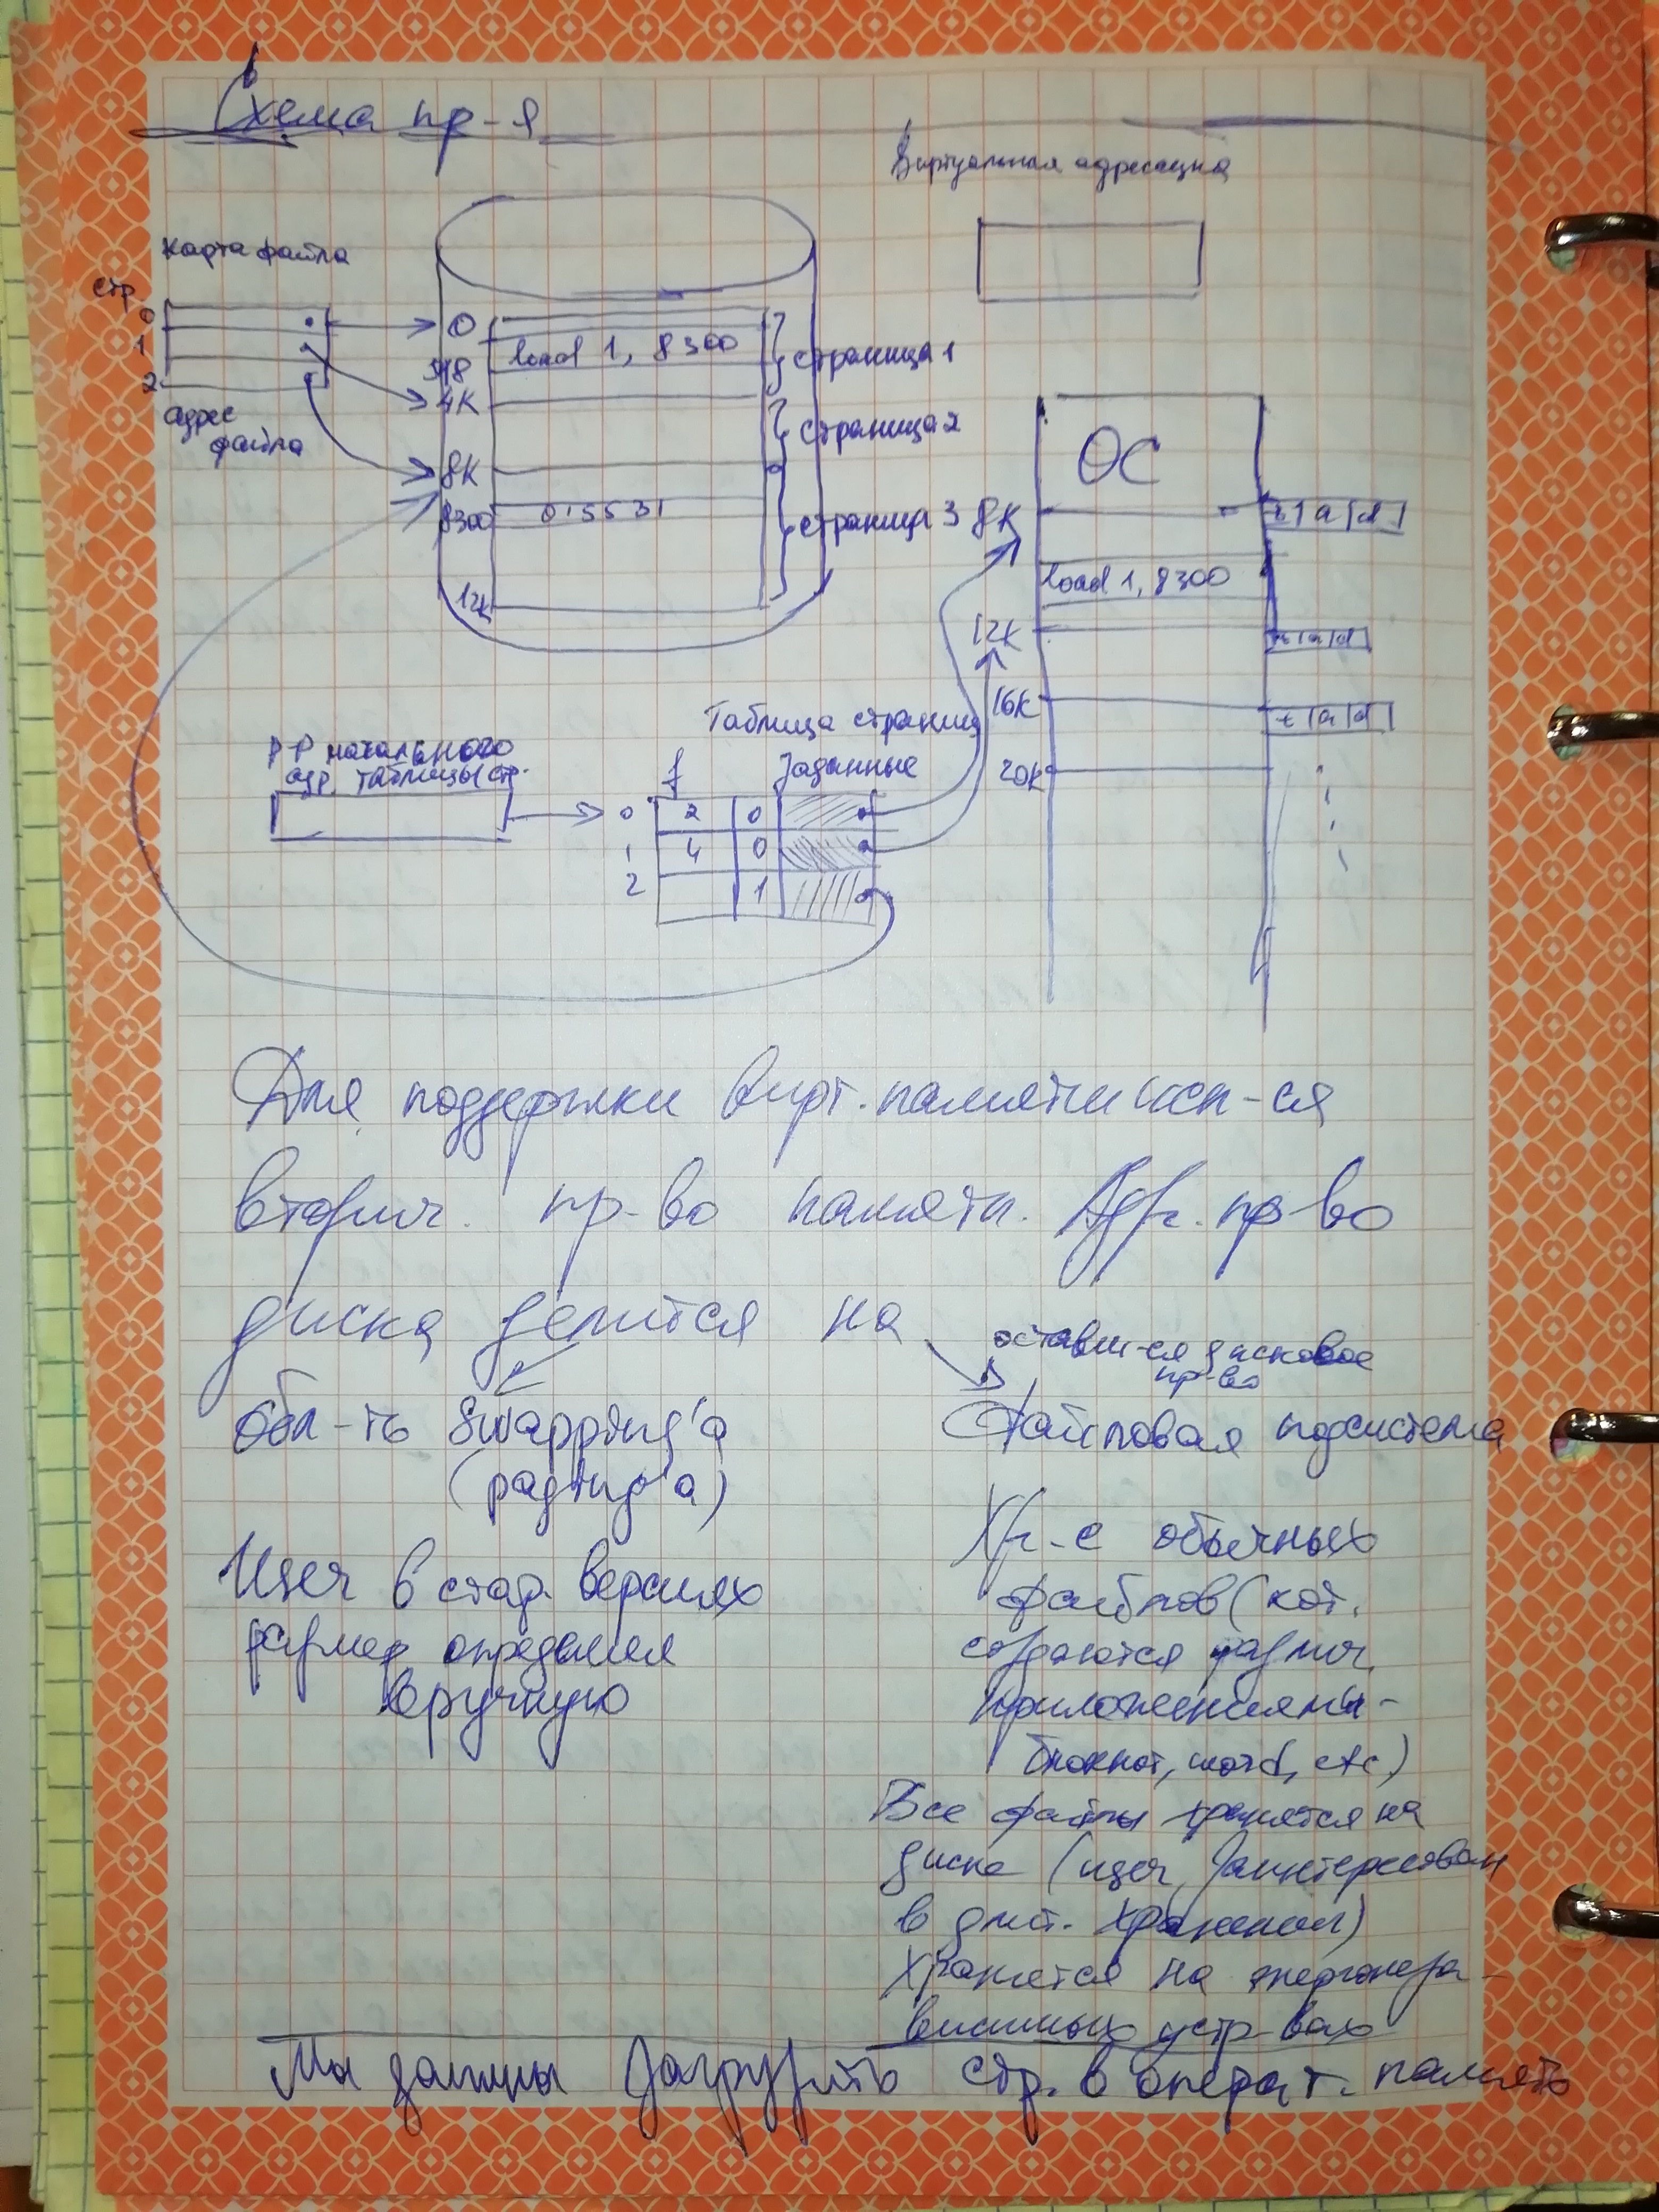 Схема пр-я
Виртуальная адресация
Карта файла
стр.
0
1
2
адрес
файла
0
518
load 1, 8300
4К
8К
8300
015531
12к
страница 1
страница 2
страница 3
ОС
8К
t|a|d|
load 1, 8300
12К
t|a|d|
16К
t|a|d|
20К
Р-Р начального
адр. таблицы стр.
Таблица страниц
f
Заданные
0 2 0
1 4 0
2 1
Для поддержки вирт. памяти исп-ся
вторич. пр-во памяти. Адр. пр-во
диска делится на
обл-ть swapping'а
(paging'а)
Юзер в стар. версиях
размер определял
вручную
оставш-ся дисковое
пр-во
Файловая подсистема
Хр-е обычных
файлов (кот.
создаются различ.
приложениями -
блокнот, word, etc)
Все файлы хранятся на
диске (юзер заинтересован
в длит. хранении)
Хранятся на энергонеза-
висимых устр-вах
Мы должны загрузить стр. в операт. память